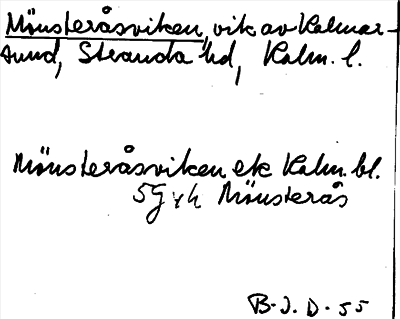 Mönsteråsviken, vik av Kalmar-
sund, Stranda hd, Kalm. l.
Mönsteråsviken ek Kalm. bl.
5G Mönsterås
B.J.D. 55